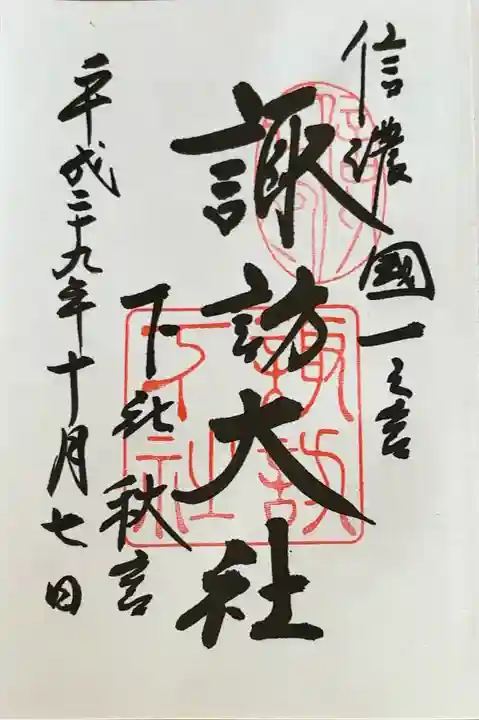 信濃國一之宮
諏訪大社
下社秋宮
平成二十九年十月七日
諏訪下社